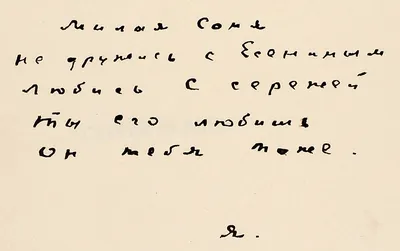 Милая Соня
не дружись с Есениным
любись с сережей
ты его любишь
он тебя тоже.
я.